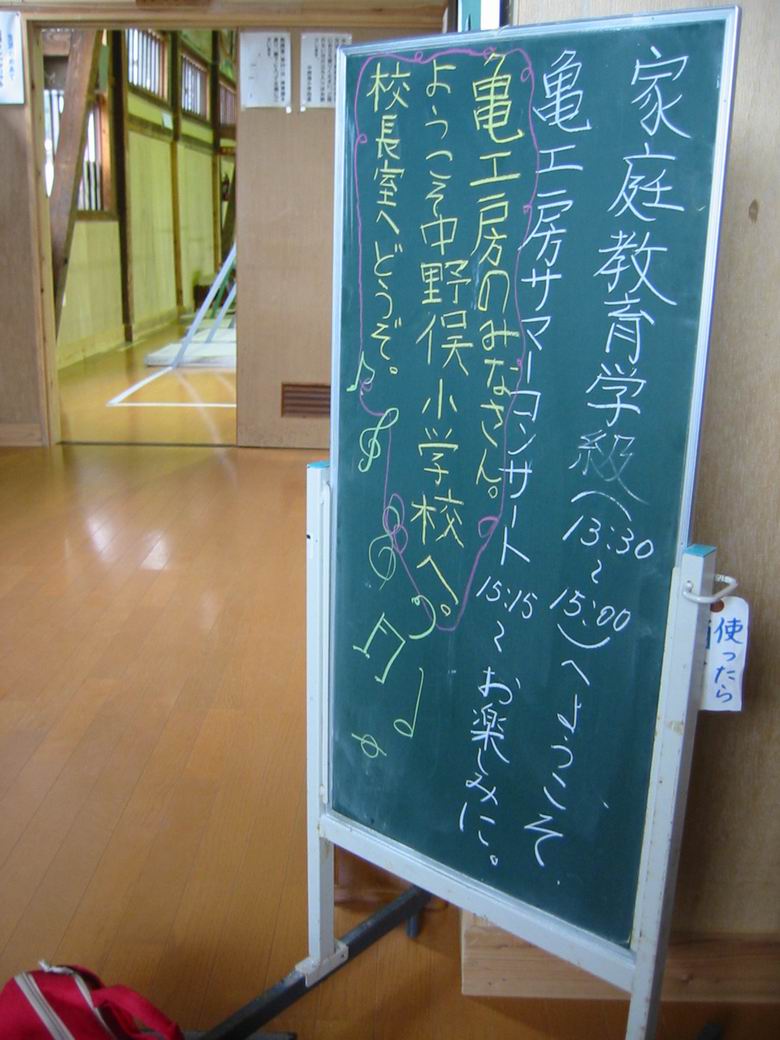 家庭教育学級(13:30〜15:00)へようこそ.
亀工房サマーコンサート 15:15〜 お楽しみに。
亀工房のみなさん。
ようこそ中野俣小学校へ。
校長室へどうぞ。
使ったら